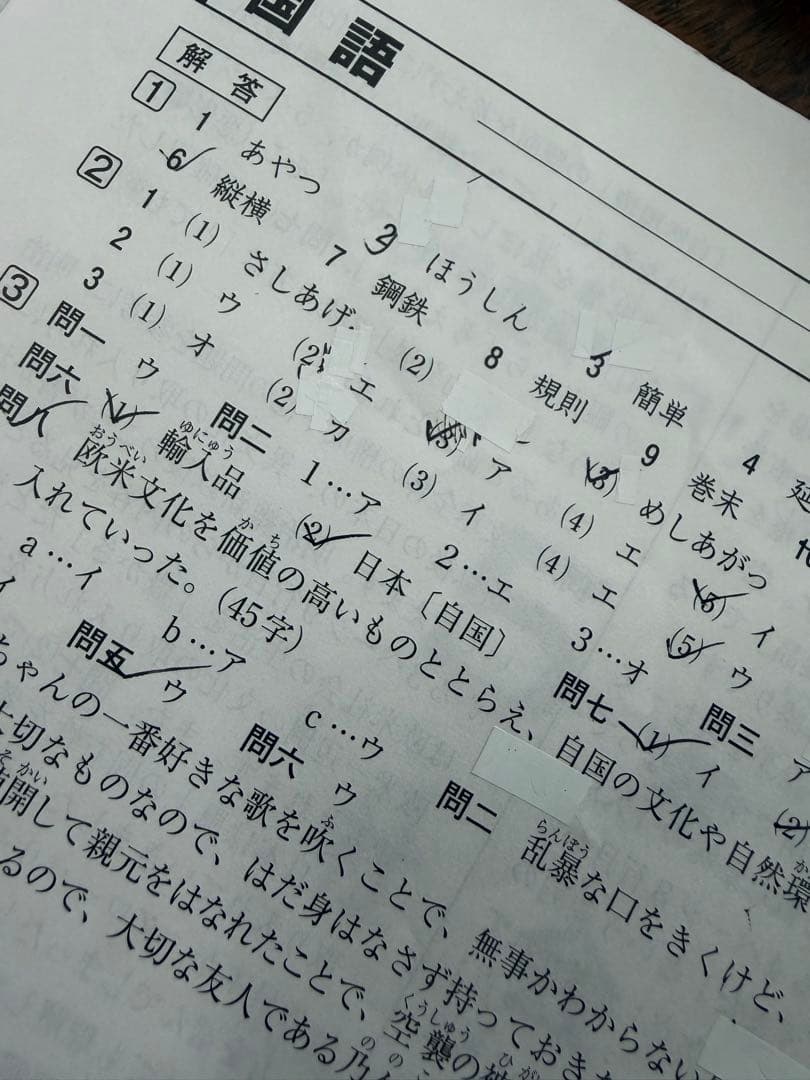 国語
解答
1 1 あやつ 2 ほうしん 3 簡単 4 延
6 縦横 7 鋼鉄 8 規則 9 巻末 10
2 1 (1) さしあげ (2) (3) めしあがっ
2 (1) ウ (2) エ (3) ア (4) エ (5) イ
3 (1) オ (2) カ (3) イ (4) エ (5) ウ
3 問一 ウ 問二 1…ア 2…エ 3…オ 問三 ア
問六 (1) 輸入品 (2) 日本〔自国〕 問七 (1) イ (2)
問八 欧米文化を価値の高いものととらえ、自国の文化や自然環
入れていった。(45字)
a…イ b…ア c…ウ 問二 乱暴な口をきくけど、
問五 ウ 問六 ウ
ちゃんの一番好きな歌を吹くことで、無事かわからない
大切なものなので、はだ身はなさず持っておき
開して親元をはなれたことで、空襲の
るので、大切な友人である乃